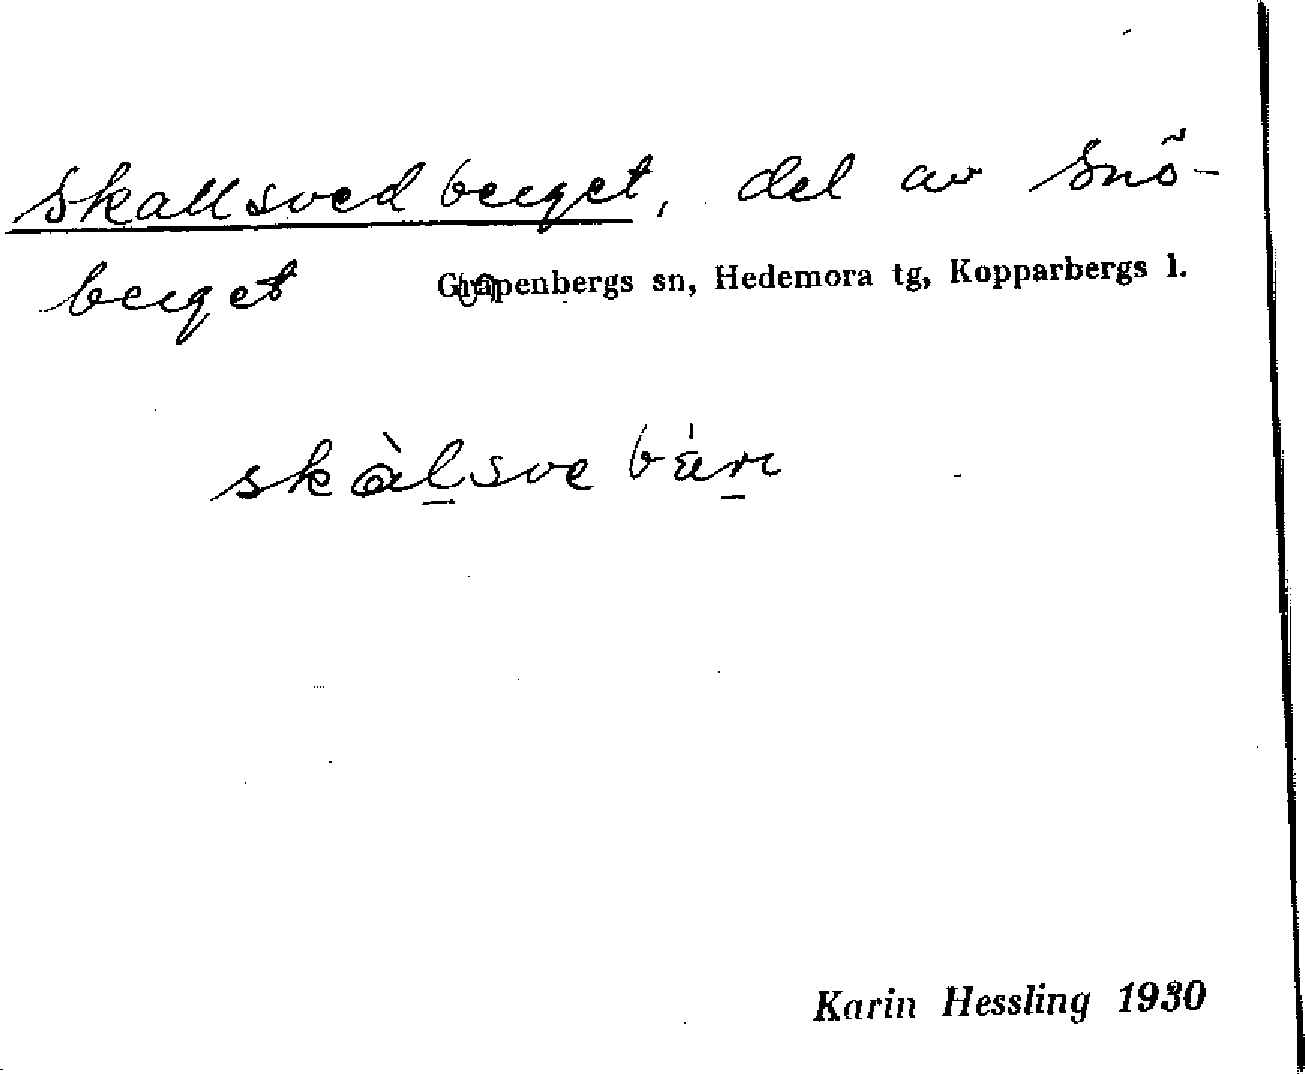 Skallsvedberget, del av Snö-
berget Garpenbergs sn, Hedemora tg, Kopparbergs l.
skàlsve bärı
Karin Hessling 1930